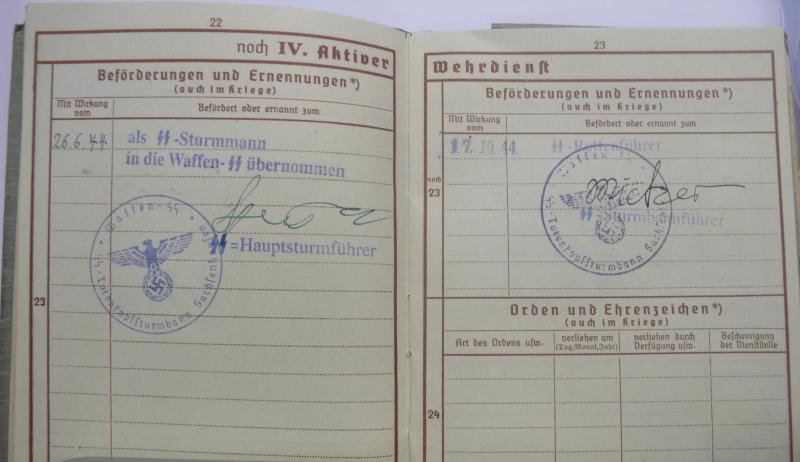 22
noch IV. Aktiver
Beförderungen und Ernennungen*)
(auch im Kriege)
Mit Wirkung vom
Befördert oder ernannt zum
26.6.44
als ᛋᛋ-Sturmmann
in die Waffen-ᛋᛋ übernommen
ᛋᛋ=Hauptsturmführer
Waffen-ᛋᛋ
ᛋᛋ-Totenkopfsturmbann
23
23
Wehrdienst
Beförderungen und Ernennungen*)
(auch im Kriege)
Mit Wirkung vom
Befördert oder ernannt zum
17. 10. 44
ᛋᛋ-Rottenführer
noch
23
ᛋᛋ-Sturmbannführer
Waffen
ᛋᛋ-Totenkopfsturmbann
Orden und Ehrenzeichen*)
(auch im Kriege)
Art des Ordens usw.
verliehen am
(Tag, Monat, Jahr)
verliehen durch
Verfügung usw.
Bescheinigung
der Dienststelle
24